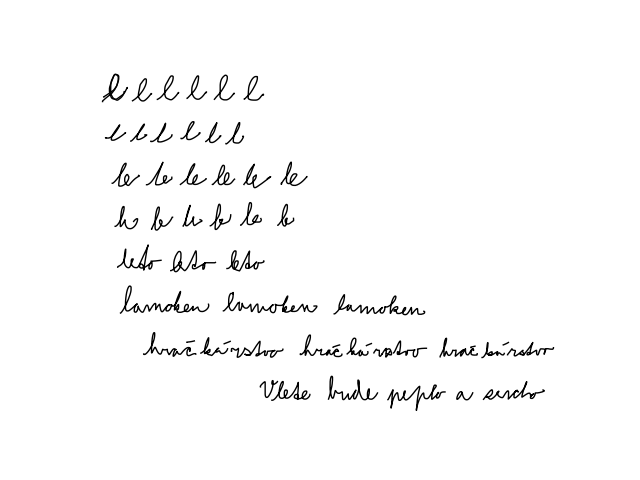 l l l l l l
l l l l l l
le le le le le le
leto leto leto
lamoken lamoken lamoken
hračkárstvo hračkárstvo hračkárstvo
Vlete bude peplo a